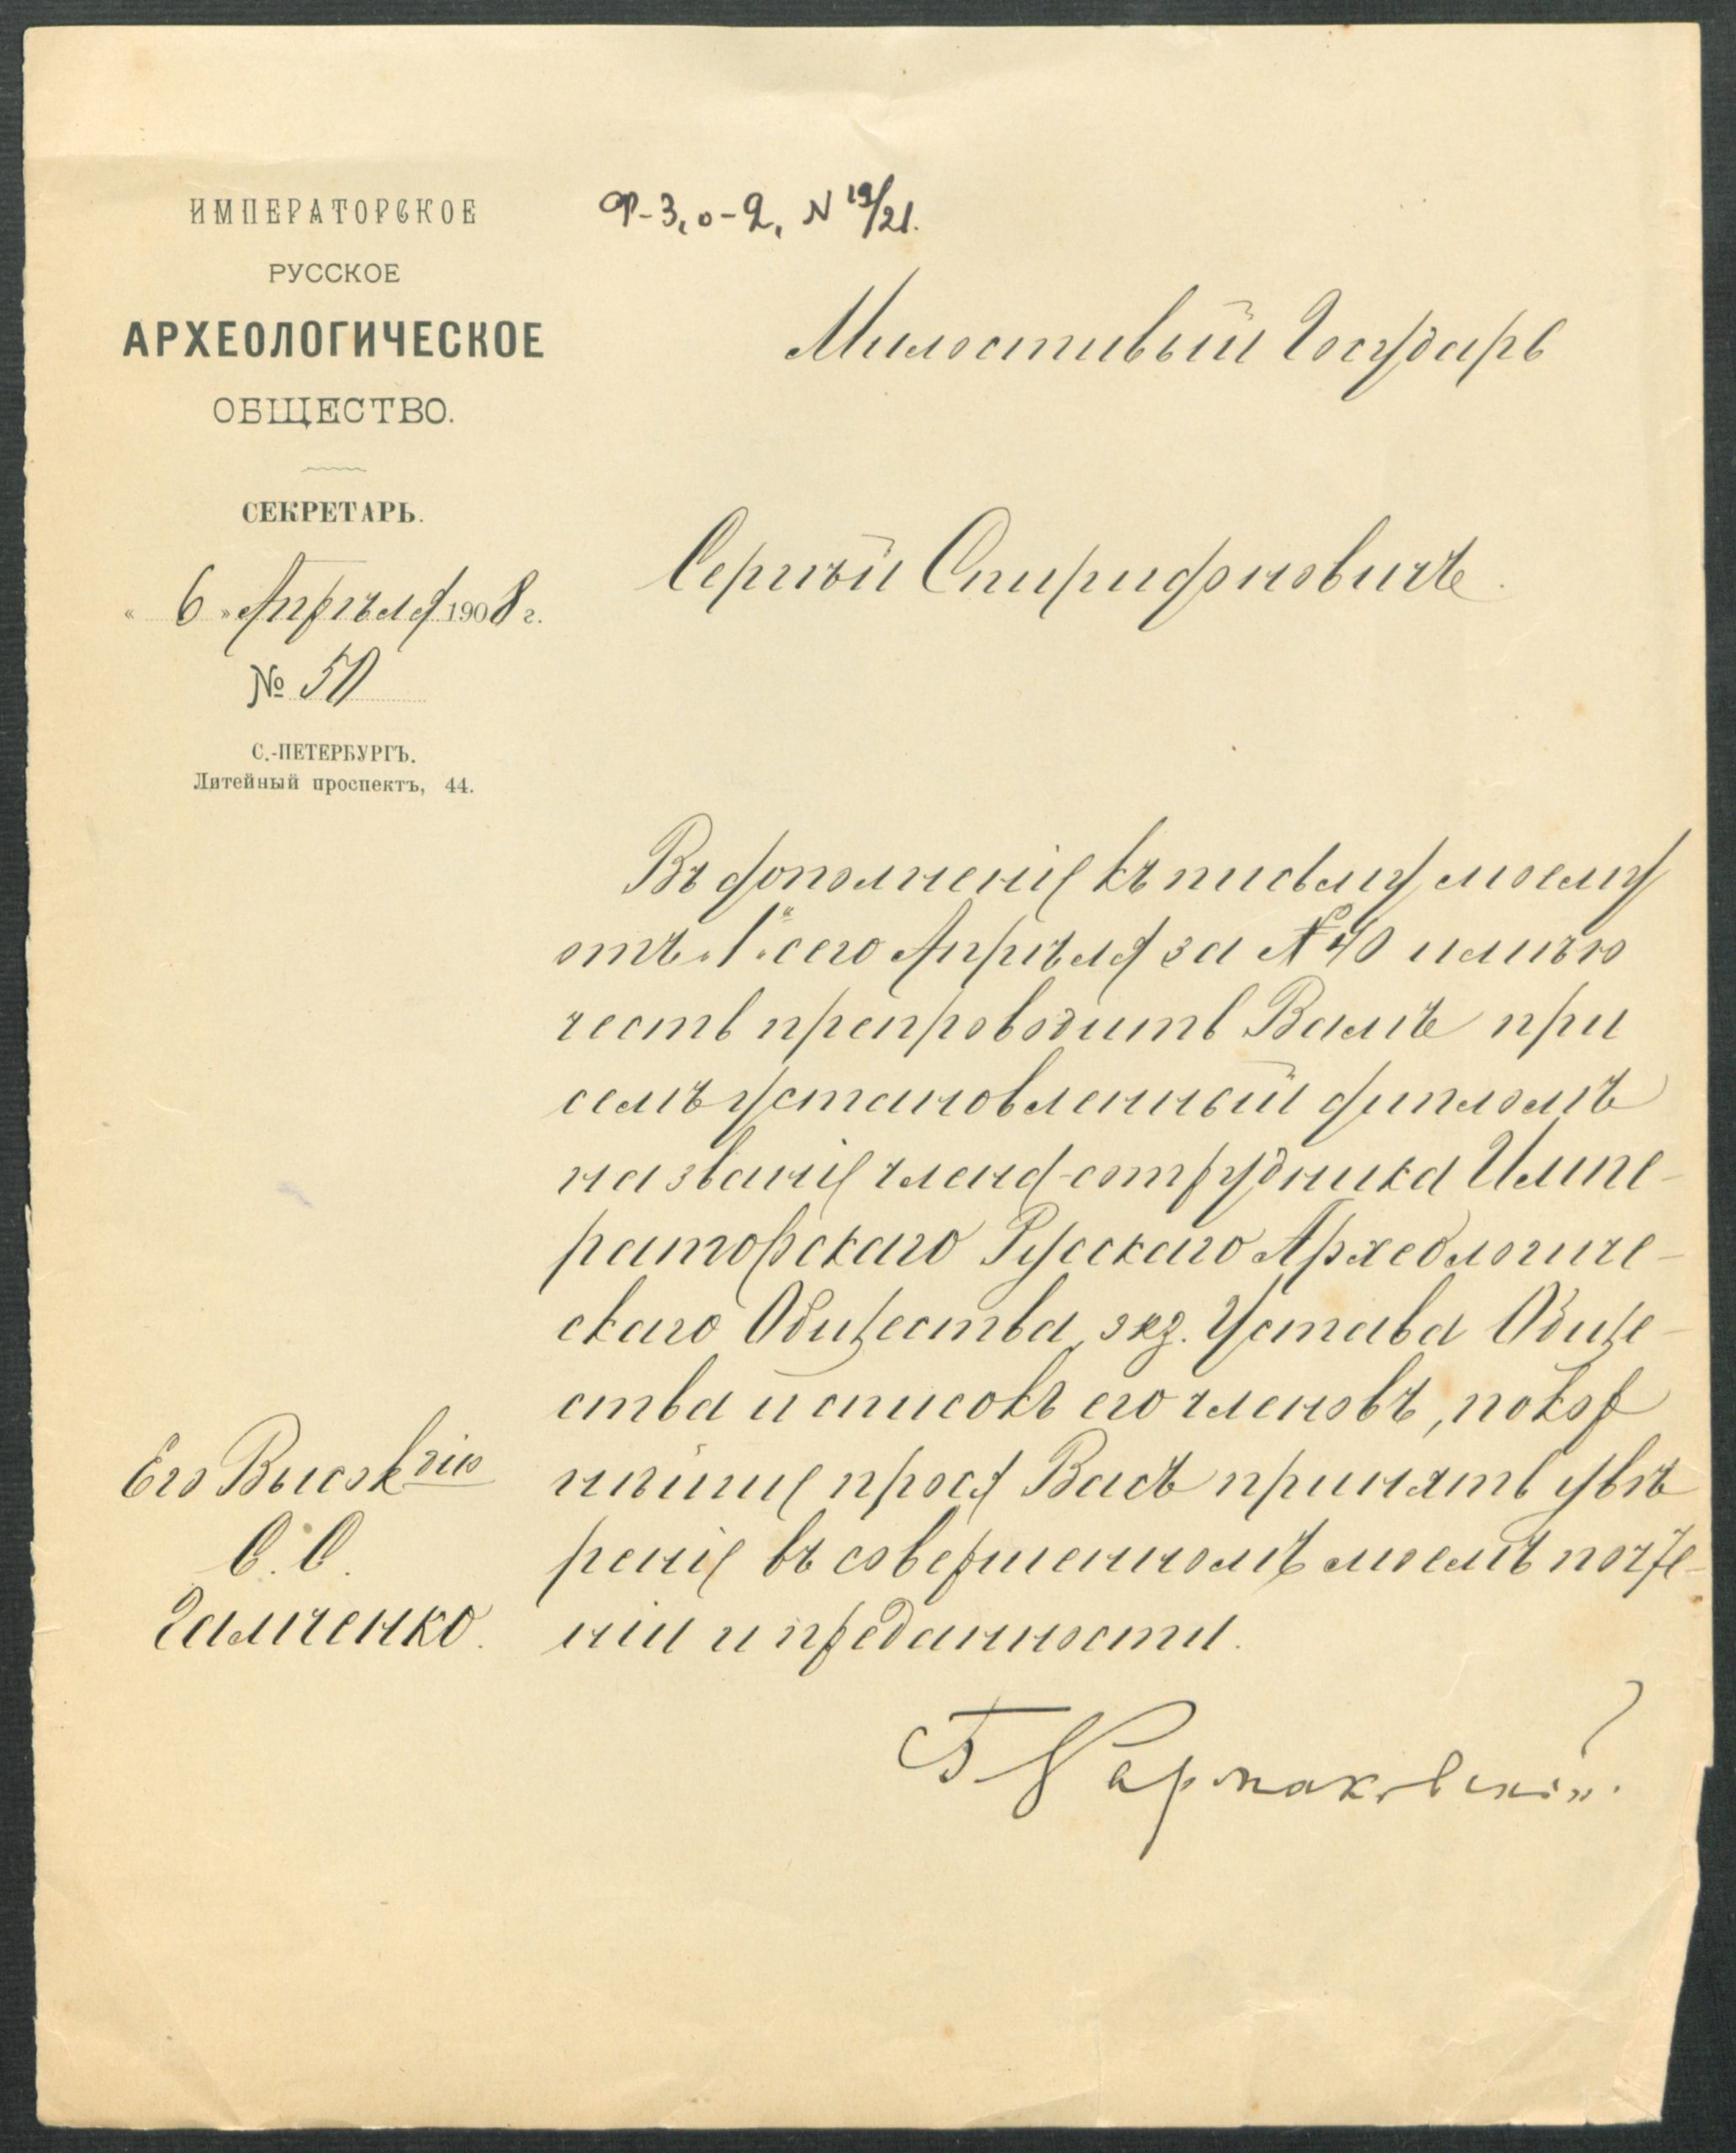 ИМПЕРАТОРСКОЕ
РУССКОЕ
АРХЕОЛОГИЧЕСКОЕ
ОБЩЕСТВО.
СЕКРЕТАРЬ.
« 6 » Апрѣля 1908 г.
№ 50
С.-ПЕТЕРБУРГЪ.
Литейный проспектъ, 44.
Ф-3, о-2, N 19/21.
Милостивый Государь
Сергѣй Спиридоновичъ.
Въ дополненіе къ письму моему
отъ "1" сего Апрѣля за № 40 имѣю
честь препроводить Вамъ при
семъ установленный дипломъ
на званіе члена-сотрудника Импе-
раторскаго Русскаго Археологиче-
скаго Общества, экз. Устава Обще-
ства и списокъ его членовъ, покор
нѣйше прося Васъ принять увѣ
реніе въ совершенномъ моемъ почте-
ніи и преданности.
Его Высокбгію
С. С.
Гамченко.
Б Фармаковскій.